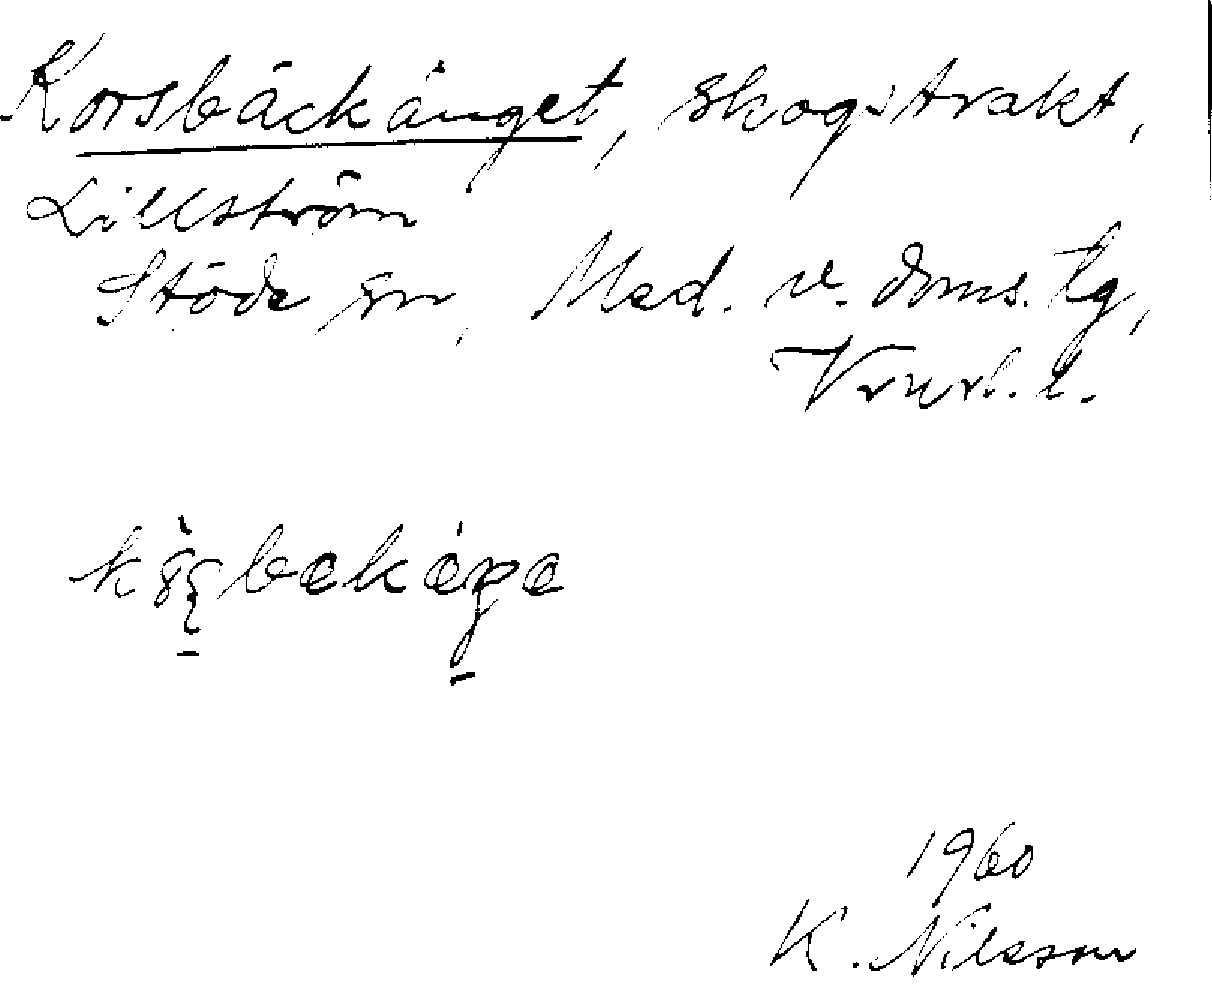 Korsbäckänget, skogstrakt,
Lillström
Stöde sn, Med. v. doms. tg,
Vnorl. l.
1960
K. Nilsson